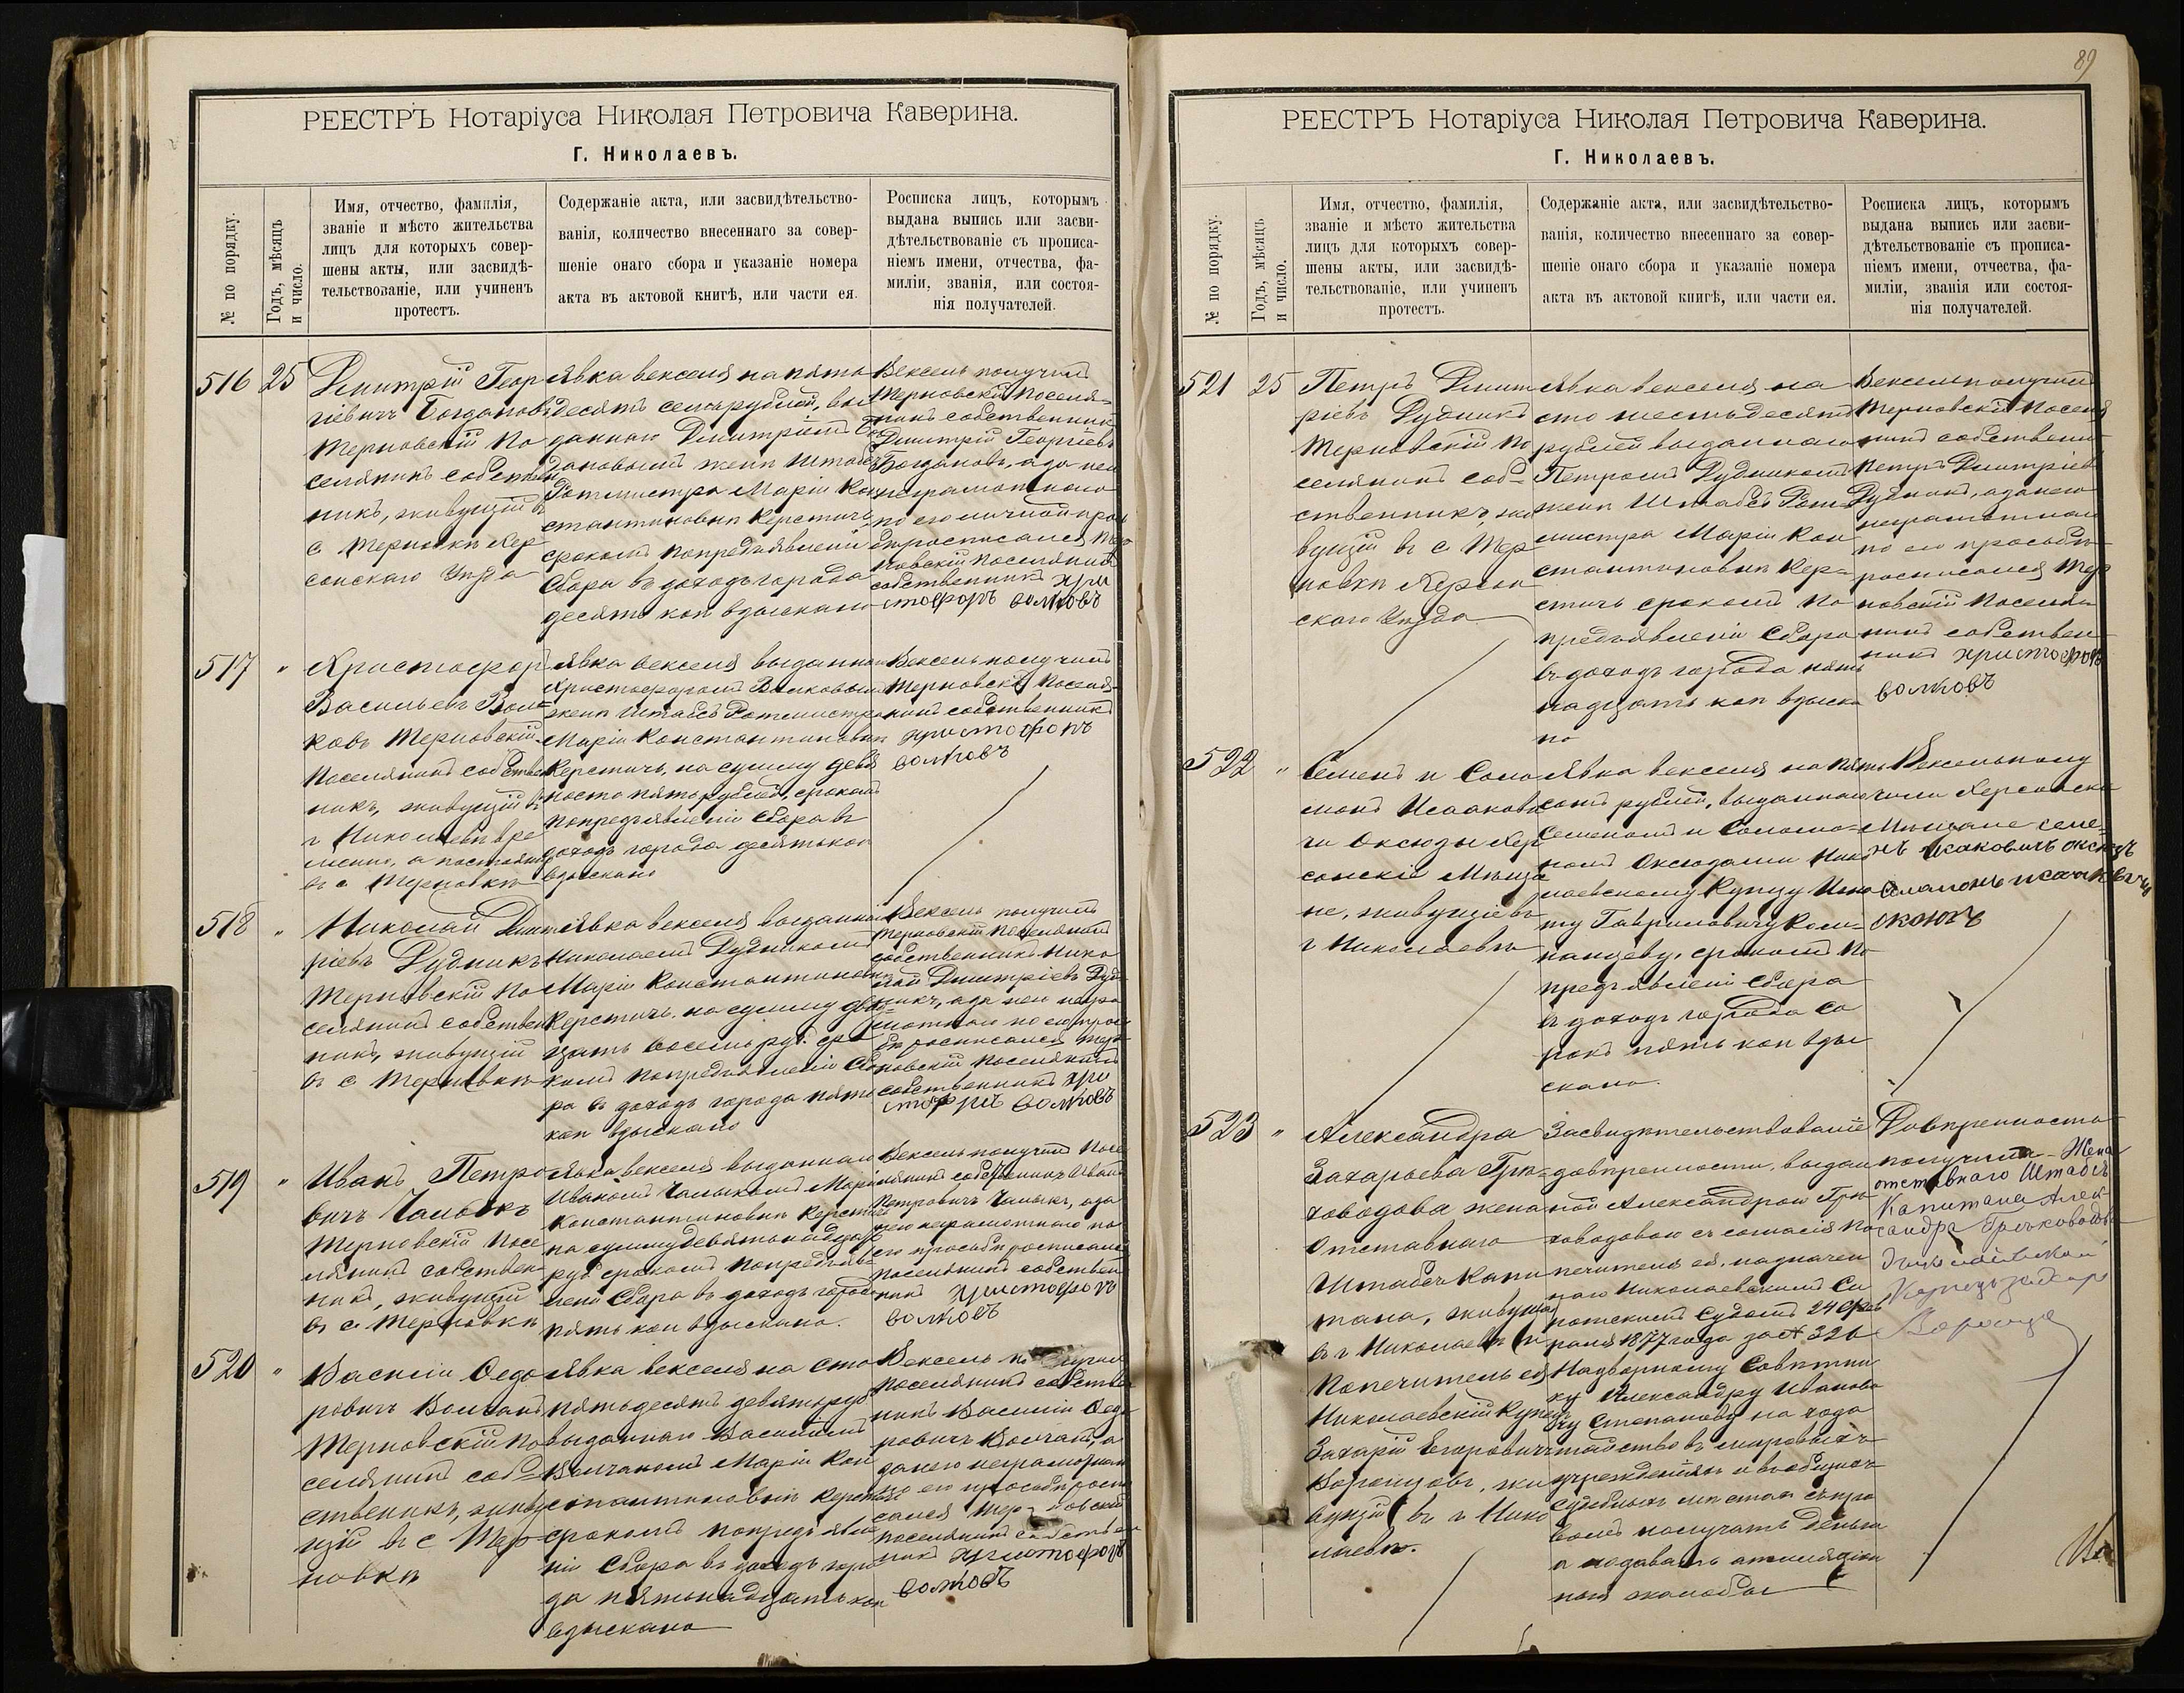 РЕЕСТРЪ Нотаріуса Николая Петровича Каверина.
Г. Николаевъ.
№ по порядку.
Годъ, мѣсяцъ
и число.
Имя, отчество, фамилія,
званіе и мѣсто жительства
лицъ для которыхъ совер-
шены акты, или засвидѣ-
тельствованіе, или учиненъ
протестъ.
Содержаніе акта, или засвидѣтельство-
ванія, количество внесеннаго за совер-
шеніе онаго сбора и указаніе номера
акта въ актовой книгѣ, или части ея.
Росписка лицъ, которымъ
выдана выпись или засви-
дѣтельствованіе съ прописа-
ніемъ имени, отчества, фа-
миліи, званія, или состоя-
нія получателей.
516
25
Дмитрій Геор
гіевичъ Богдановъ
Терновскій по
селянинъ собствен
никъ, живущій въ
с Терновкѣ Хер
сонскаго Уѣзда
Явка векселя на пять
десятъ семь рублей, вы
даннаго Дмитріемъ Бог
дановымъ женѣ Штабсъ
Ротмистра Маріи Кон
стантиновнѣ Керстичъ
срокомъ попредъявленіи
Сбора въ доходъ города
десять коп взыскано
Вексель получилъ
Терновскій поселя-
нинъ собственникъ
Дмитрій Георгіевъ
Богдановъ, а за него
неграмотнаго
по его личной прось
бѣ росписался Тер
новскій поселянинъ
собственникъ хри
стофоръ волковъ
517
"
Христофоръ
Васильевъ Вол-
ковъ Терновскій
поселянинъ собствен
никъ, живущій въ
г Николаевѣ вре
менно, а постоянно
въ с Терновкѣ
Явка векселя выданнаго
Христофоромъ Волковымъ
женѣ Штабсъ Ротмистра
Маріи Константиновнѣ
Керстичъ, на сумму девя
носто пять рублей, срокомъ
попредъявленіи Сбора въ
доходъ города десять коп
взыскано
Вексель получилъ
Терновскій поселя-
нинъ собственникъ
христофоръ
волковъ
518
"
Николай Дмит
ріевъ Дудникъ
Терновскій по
селянинъ собствен
никъ, живущій
въ с Терновкѣ
Явка векселя выданнаго
Николаемъ Дудникомъ
Маріи Константиновнѣ
Керстичъ, на сумму два
цать восемь руб. сро
комъ попредъявленіи Сбо
ра въ доходъ города пять
коп взыскано
Вексель получилъ
Терновскій поселянинъ
собственникъ Нико
лай Дмитріевъ Дуд
никъ, а за него негра
мотнаго по его прось
бѣ росписался Тер
новскій поселянинъ
собственникъ хри
стофоръ волковъ
519
"
Иванъ Петро
вичъ Чалыкъ
Терновскій посе
лянинъ собствен
никъ, живущій
въ с Терновкѣ
Явка векселя выданнаго
Иваномъ Чалыкомъ Маріи
Константиновнѣ Керстичъ
на сумму девятьнадцать
руб срокомъ попредъявле
леніи Сбора въ доходъ города
пять коп взыскано.
Вексель получилъ посе
лянинъ собственникъ Иванъ
Петровичъ Чалыкъ, а за
него неграмотнаго по
его просьбѣ росписался
поселянинъ собствен
никъ христофоръ
волковъ
520
"
Василій Ѳедо
ровичъ Волчанъ
Терновскій по
селянинъ соб-
ственикъ, живу
щій въ с Тер-
новкѣ
Явка векселя на сто
пятьдесятъ девять руб
выданнаго Василіемъ
Волчаномъ Маріи Кон
стантиновнѣ Керстичъ
срокомъ попредъявле
ніи Сбора въ доходъ горо
да пятьнадцать коп
взыскано
Вексель получилъ
поселянинъ собствен
никъ Василій Ѳедо
ровичъ Волчанъ, а
за него неграмотнаго
по его просьбѣ роспи
сался Терновскій
поселянинъ собствен
никъ христофоръ
волковъ
89
РЕЕСТРЪ Нотаріуса Николая Петровича Каверина.
Г. Николаевъ.
№ по порядку.
Годъ, мѣсяцъ
и число.
Имя, отчество, фамилія,
званіе и мѣсто жительства
лицъ для которыхъ совер-
шены акты, или засвидѣ-
тельствованіе, или учиненъ
протестъ.
Содержаніе акта, или засвидѣтельство-
ванія, количество внесеннаго за совер-
шеніе онаго сбора и указаніе номера
акта въ актовой книгѣ, или части ея.
Росписка лицъ, которымъ
выдана выпись или засви-
дѣтельствованіе съ прописа-
ніемъ имени, отчества, фа-
миліи, званія или состоя-
нія получателей.
521
25
Петръ Дмит
ріевъ Дудникъ
Терновскій по
селянинъ соб-
ственникъ, жи
вущій въ с Тер
новкѣ Херсон
скаго Уѣзда
Явка векселя на
сто шестьдесятъ
рублей выданнаго
Петромъ Дудникомъ
женѣ Штабсъ Рот
мистра Маріи Кон
стантиновнѣ Кер-
стичъ срокомъ по
предъявленіи Сбора
въ доходъ города пять
надцать коп взыска
но
Вексель получилъ
Терновскій поселя
нинъ собственникъ
Петръ Дмитріевъ
Дудникъ, а за него
неграмотнаго
по его просьбѣ
росписался Тер
новскій поселя
нинъ собствен
никъ христофоръ
волковъ
522
"
Семенъ и Соло
монъ Исаакови
чи Оксюзы Хер
сонскіе Мѣща
не, живущіе въ
г Николаевѣ
Явка векселя на пять
сотъ рублей, выданнаго
Семеномъ и Соломо-
номъ Оксюзами Нико
лаевскому Купцу Игна
ту Гавриловичу Ком-
панцеву, срокомъ по
предъявленіи Сбора
въ доходъ города со
рокъ пять коп взы
скано.
Вексель полу
чили Херсонскіе
Мѣщане семе-
нъ исаковичъ
523
"
Александра
Захарьева Грѣ-
ховодова жена
Отставнаго
Штабсъ Капи
тана, живущая
въ г Николаевѣ и
Попечитель ея
Николаевскій Купецъ
Захарій Егоровичъ
Воронцовъ, жи
вущій въ г Нико
лаевѣ.
Засвидѣтельствованіе
довѣренности, выдан
ной Александрой Грѣ
ховодовою съ согласія По
печителя ея, назначен
наго Николаевскимъ Си
ротскимъ Судомъ 24 Фев
раля 1877 года за № 326
Надворному Совѣтни
ку Александру Иванови
чу Степанову на хода
тайство въ мировыхъ
учрежденіяхъ и вообщихъ
судебныхъ мѣстахъ съ пра
вомъ получать деньги
и подавать апелляціон
ныя жалобы
Довѣренность
получила - Жена
отставнаго Штабсъ
Капитана Алек-
сандра
Николаевской
Купецъ